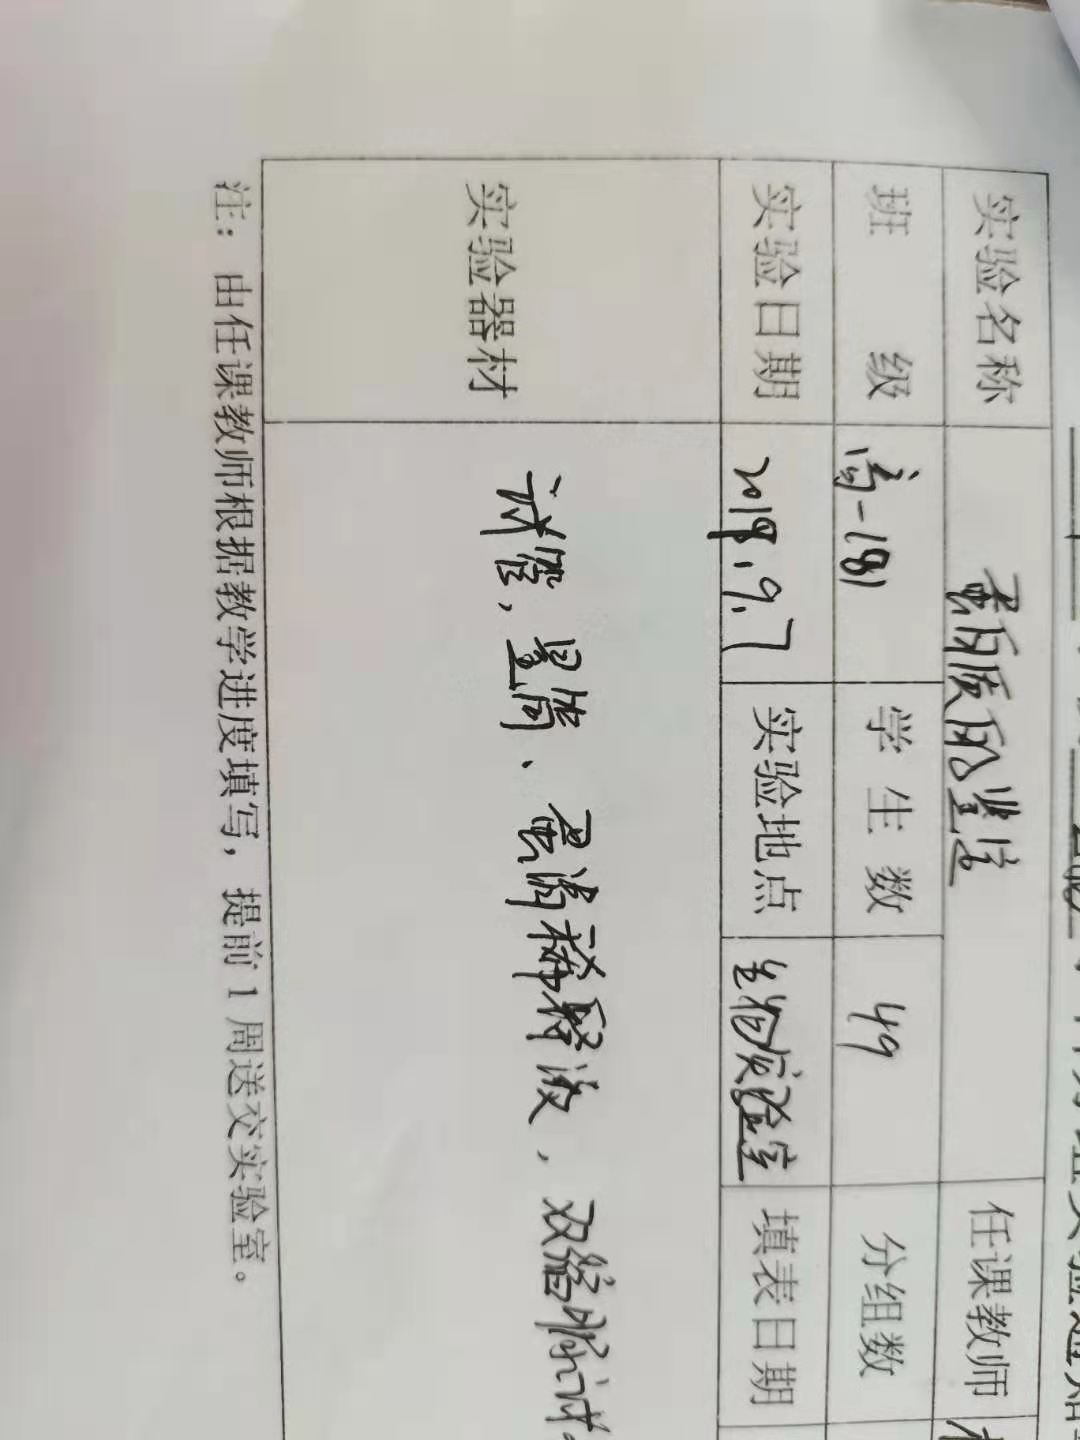 实验名称 蛋白质的鉴定 任课教师
班级 高一181 学生数 49 分组数
实验日期 2018.9.7 实验地点 生物实验室 填表日期
实验器材 试管，量筒、蛋清稀释液，双缩脲试
注：由任课教师根据教学进度填写，提前1周送交实验室。